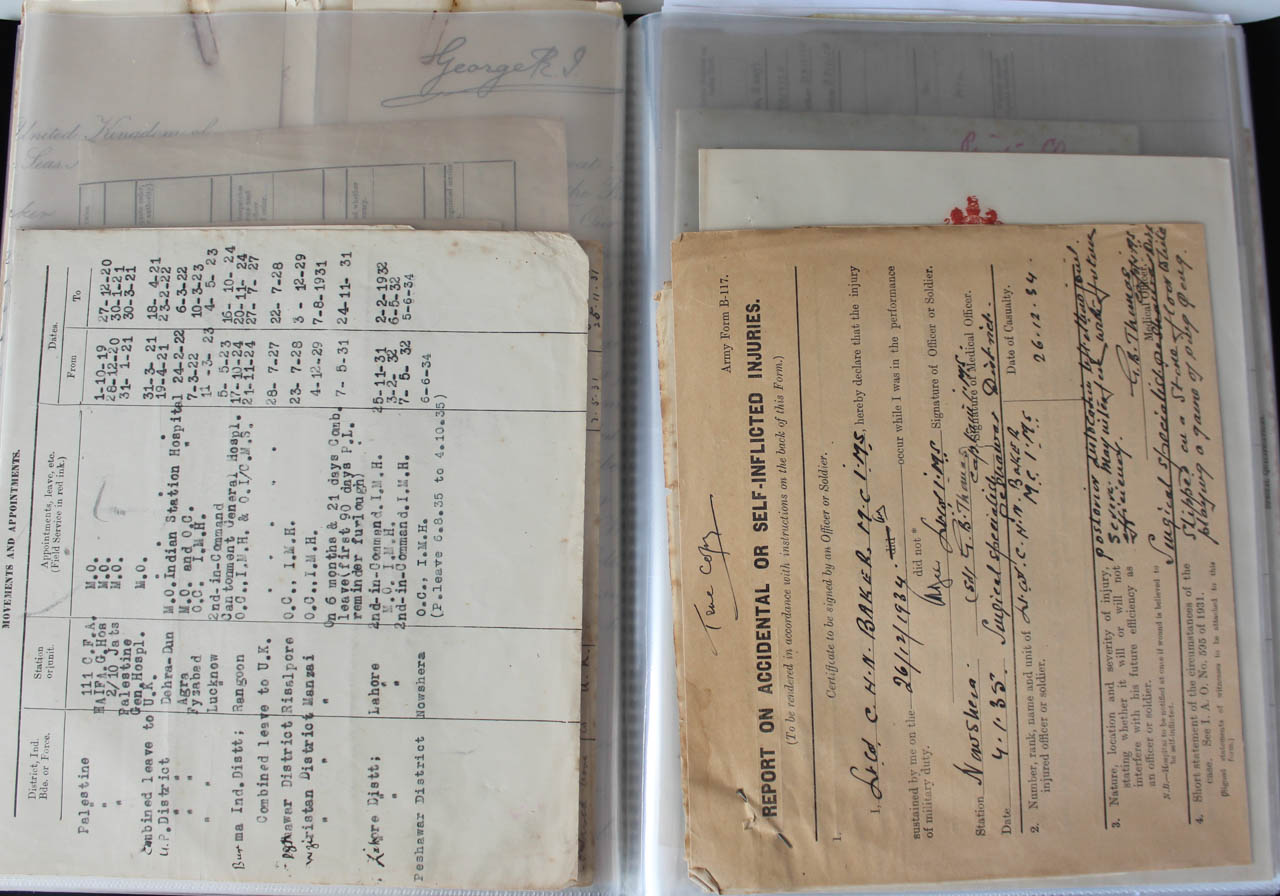 George R. I.
United Kingdom of
Seas
MOVEMENTS AND APPOINTMENTS.
District, Ind. Bde. or Force.
Station or unit.
Appointments, leave, etc. (Field Service in red ink.)
Dates.
From
To
Palestine 111 C.F.A. M.O. 1-10-19 27-12-20
" HAIFA.G.Hos M.O. 28-12-20 30-1-21
" 2/10 Jats M.O. 31- 1-21 30-3-21
Palestine Gen.Hospl. M.O.
Combined leave to U.K. 31-3- 21 18- 4-21
U.P.District Dehra-Dun M.O.Indian Station Hospital 19-4-21 23-2-22
" " Agra M.O. and O.C. " 24-2-22 6-3-22
" " Fyzabed O.C. I.M.H. 7-3-22 10-3-23
" " Lucknow 2nd-in-Command 11 -3- 23 4- 5- 23
Cantonment General Hospl. 5- 5.23 16- 10- 24
Burma Ind.Distt; Rangoon O.C.,I.M.H. & O.I/C.M.S. 17-10-24 20-11- 24
Combined leave to U.K. 21-11-24 27- 7- 27
Peshawar District Risalpore O.C., I.M.H. 28- 7-27 22- 7-28
Waziristan District Manzai O.C.,I.M.H. 23- 7-28 3 - 12-29
4-12-29 7-8-1931
On 6 months & 21 days Comb. leave(first 90 days P.L. reminder furlough) 7- 5-31 24-11- 31
Lahore Distt; Lahore 2nd-in-Command,I.M.H. 25-11-31 2-2-1932
" " M.O. I.M.H. 3-2- 32 6-5-32
2nd-in-Command,I.M.H. 7- 5- 32 5-6-34
Peshawar District Nowshera O.C., I.M.H. 6-6-34
(P.leave 6.8.35 to 4.10.35)
True Copy
Army Form B-117.
REPORT ON ACCIDENTAL OR SELF-INFLICTED INJURIES.
(To be rendered in accordance with instructions on the back of this Form.)
1. Certificate to be signed by an Officer or Soldier.
I, Lt Col C.H.N. BAKER M.C. I.M.S., hereby declare that the injury
sustained by me on the 26/12/1934 did occur while I was in the performance
of military duty. did not *
Signature of Officer or Soldier.
Station Nowshera (Sd) G.B. Thomas Capt I.M.S. Signature of Medical Officer.
Date 4.1.35 Surgical specialist Peshawar District.
2. Number, rank, name and unit of injured officer or soldier. Lt Col. C.H.N. BAKER M.C. I.M.S
Date of Casualty. 26.12.34.
3. Nature, location and severity of injury, stating whether it will or will not interfere with his future efficiency as an officer or soldier.
N.B.—Hospital to be notified at once if wound is believed to be self-inflicted.
efficiency.
G.B. Thomas Capt I.M.S.
Medical Officer.
Surgical specialist Peshawar Dist
4. Short statement of the circumstances of the case. See I. A. O. No. 595 of 1931.
(Signed statements of witnesses to be attached to this form.)
Slipped on a stone floor while
playing a game of ping pong.